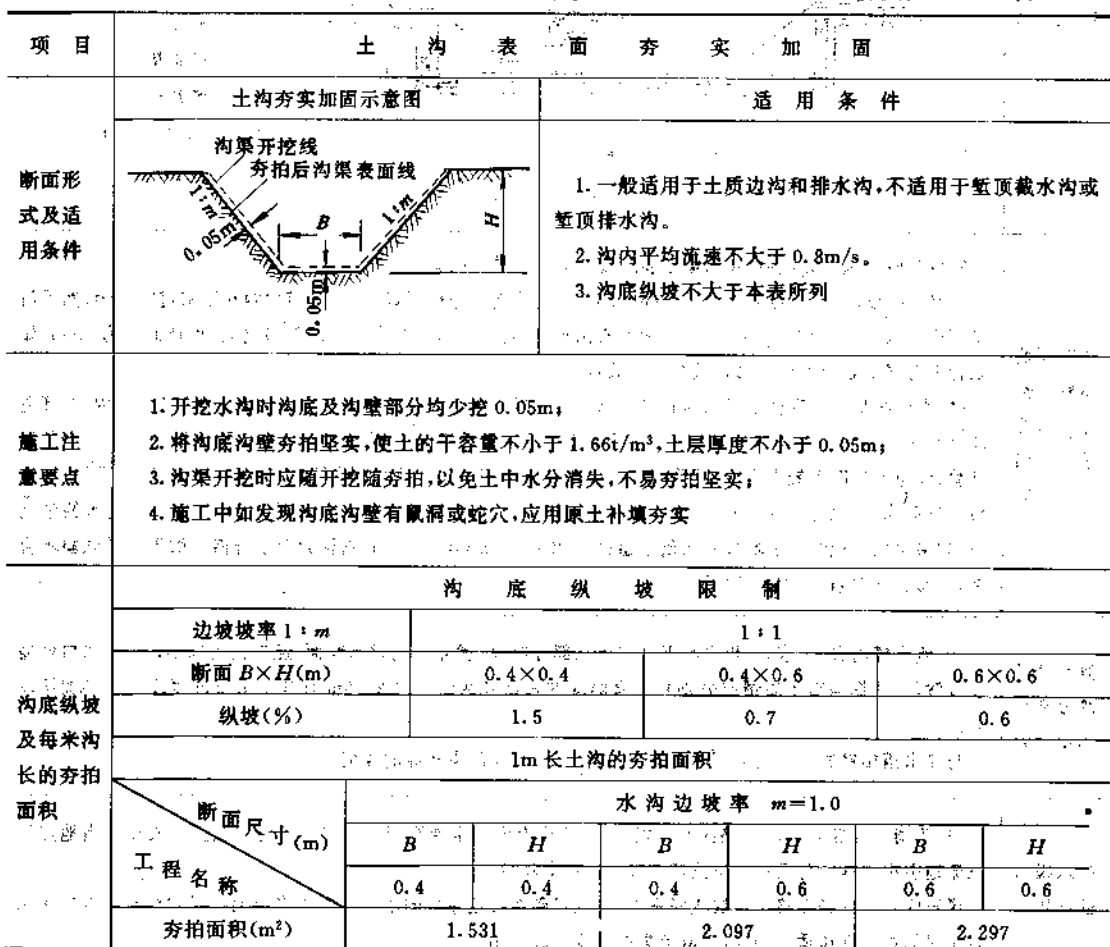 项目 土沟表面夯实加固
土沟夯实加固示意图 适用条件
断面形
式及适
用条件
沟渠开挖线
夯拍后沟渠表面线
1:m
0.05m
B
1:m
H
0.05m
1. 一般适用于土质边沟和排水沟,不适用于堑顶截水沟或
堑顶排水沟。
2. 沟内平均流速不大于 0.8m/s。
3. 沟底纵坡不大于本表所列
施工注
意要点
1. 开挖水沟时沟底及沟壁部分均少挖 0.05m;
2. 将沟底沟壁夯拍坚实,使土的干容重不小于 1.66t/m³,土层厚度不小于 0.05m;
3. 沟渠开挖时应随开挖随夯拍,以免土中水分消失,不易夯拍坚实;
4. 施工中如发现沟底沟壁有鼠洞或蛇穴,应用原土补填夯实
沟底纵坡
及每米沟
长的夯拍
面积
沟底纵坡限制
边坡坡率 1:m 1:1
断面 B×H(m) 0.4×0.4 0.4×0.6 0.6×0.6
纵坡(%) 1.5 0.7 0.6
1m 长土沟的夯拍面积
断面尺寸(m)
工程名称
水沟边坡率 m=1.0
B H B H B H
0.4 0.4 0.4 0.6 0.6 0.6
夯拍面积(m²) 1.531 2.097 2.297